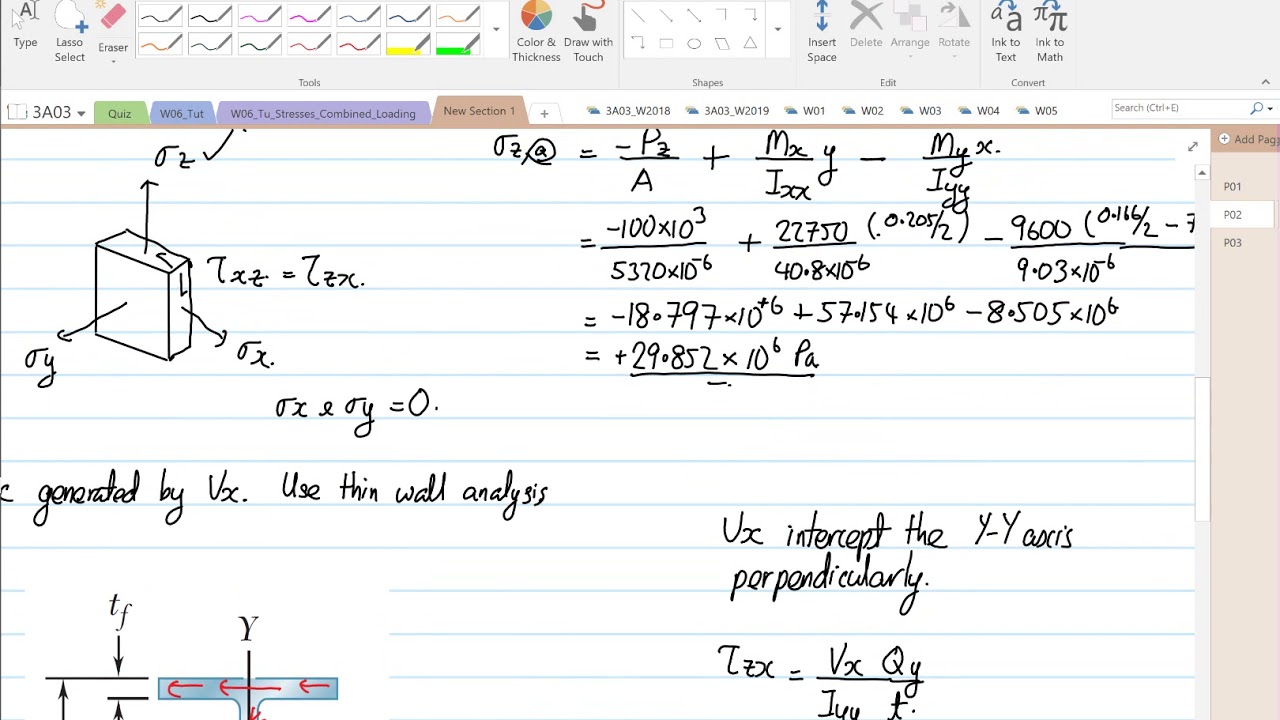 Type
Lasso Select
Eraser
Color & Thickness
Draw with Touch
Insert Space
Delete
Arrange
Rotate
Ink to Text
Ink to Math
Tools
Shapes
Edit
Convert
3A03
Quiz
W06_Tut
W06_Tu_Stresses_Combined_Loading
New Section 1
+
3A03_W2018
3A03_W2019
W01
W02
W03
W04
W05
Search (Ctrl+E)
Add Page
P01
P02
P03
σz ✓
τxz = τzx.
σy
σx.
σx & σy = 0.
σz,@ = -Pz/A + Mx/Ixx y - My/Iyy x.
= -100×10³/5320×10⁻⁶ + 22750/40.8×10⁻⁶ (0.205/2) - 9600 (0.166/2 - 7/9.03×10⁻⁶
= -18.797×10⁺⁶ + 57.154×10⁶ - 8.505×10⁶
= +29.852 × 10⁶ Pa
generated by Vx. Use thin wall analysis
Vx intercept the Y-Y axis
perpendicularly.
τzx = Vx Qy / Iyy t.
tf
Y